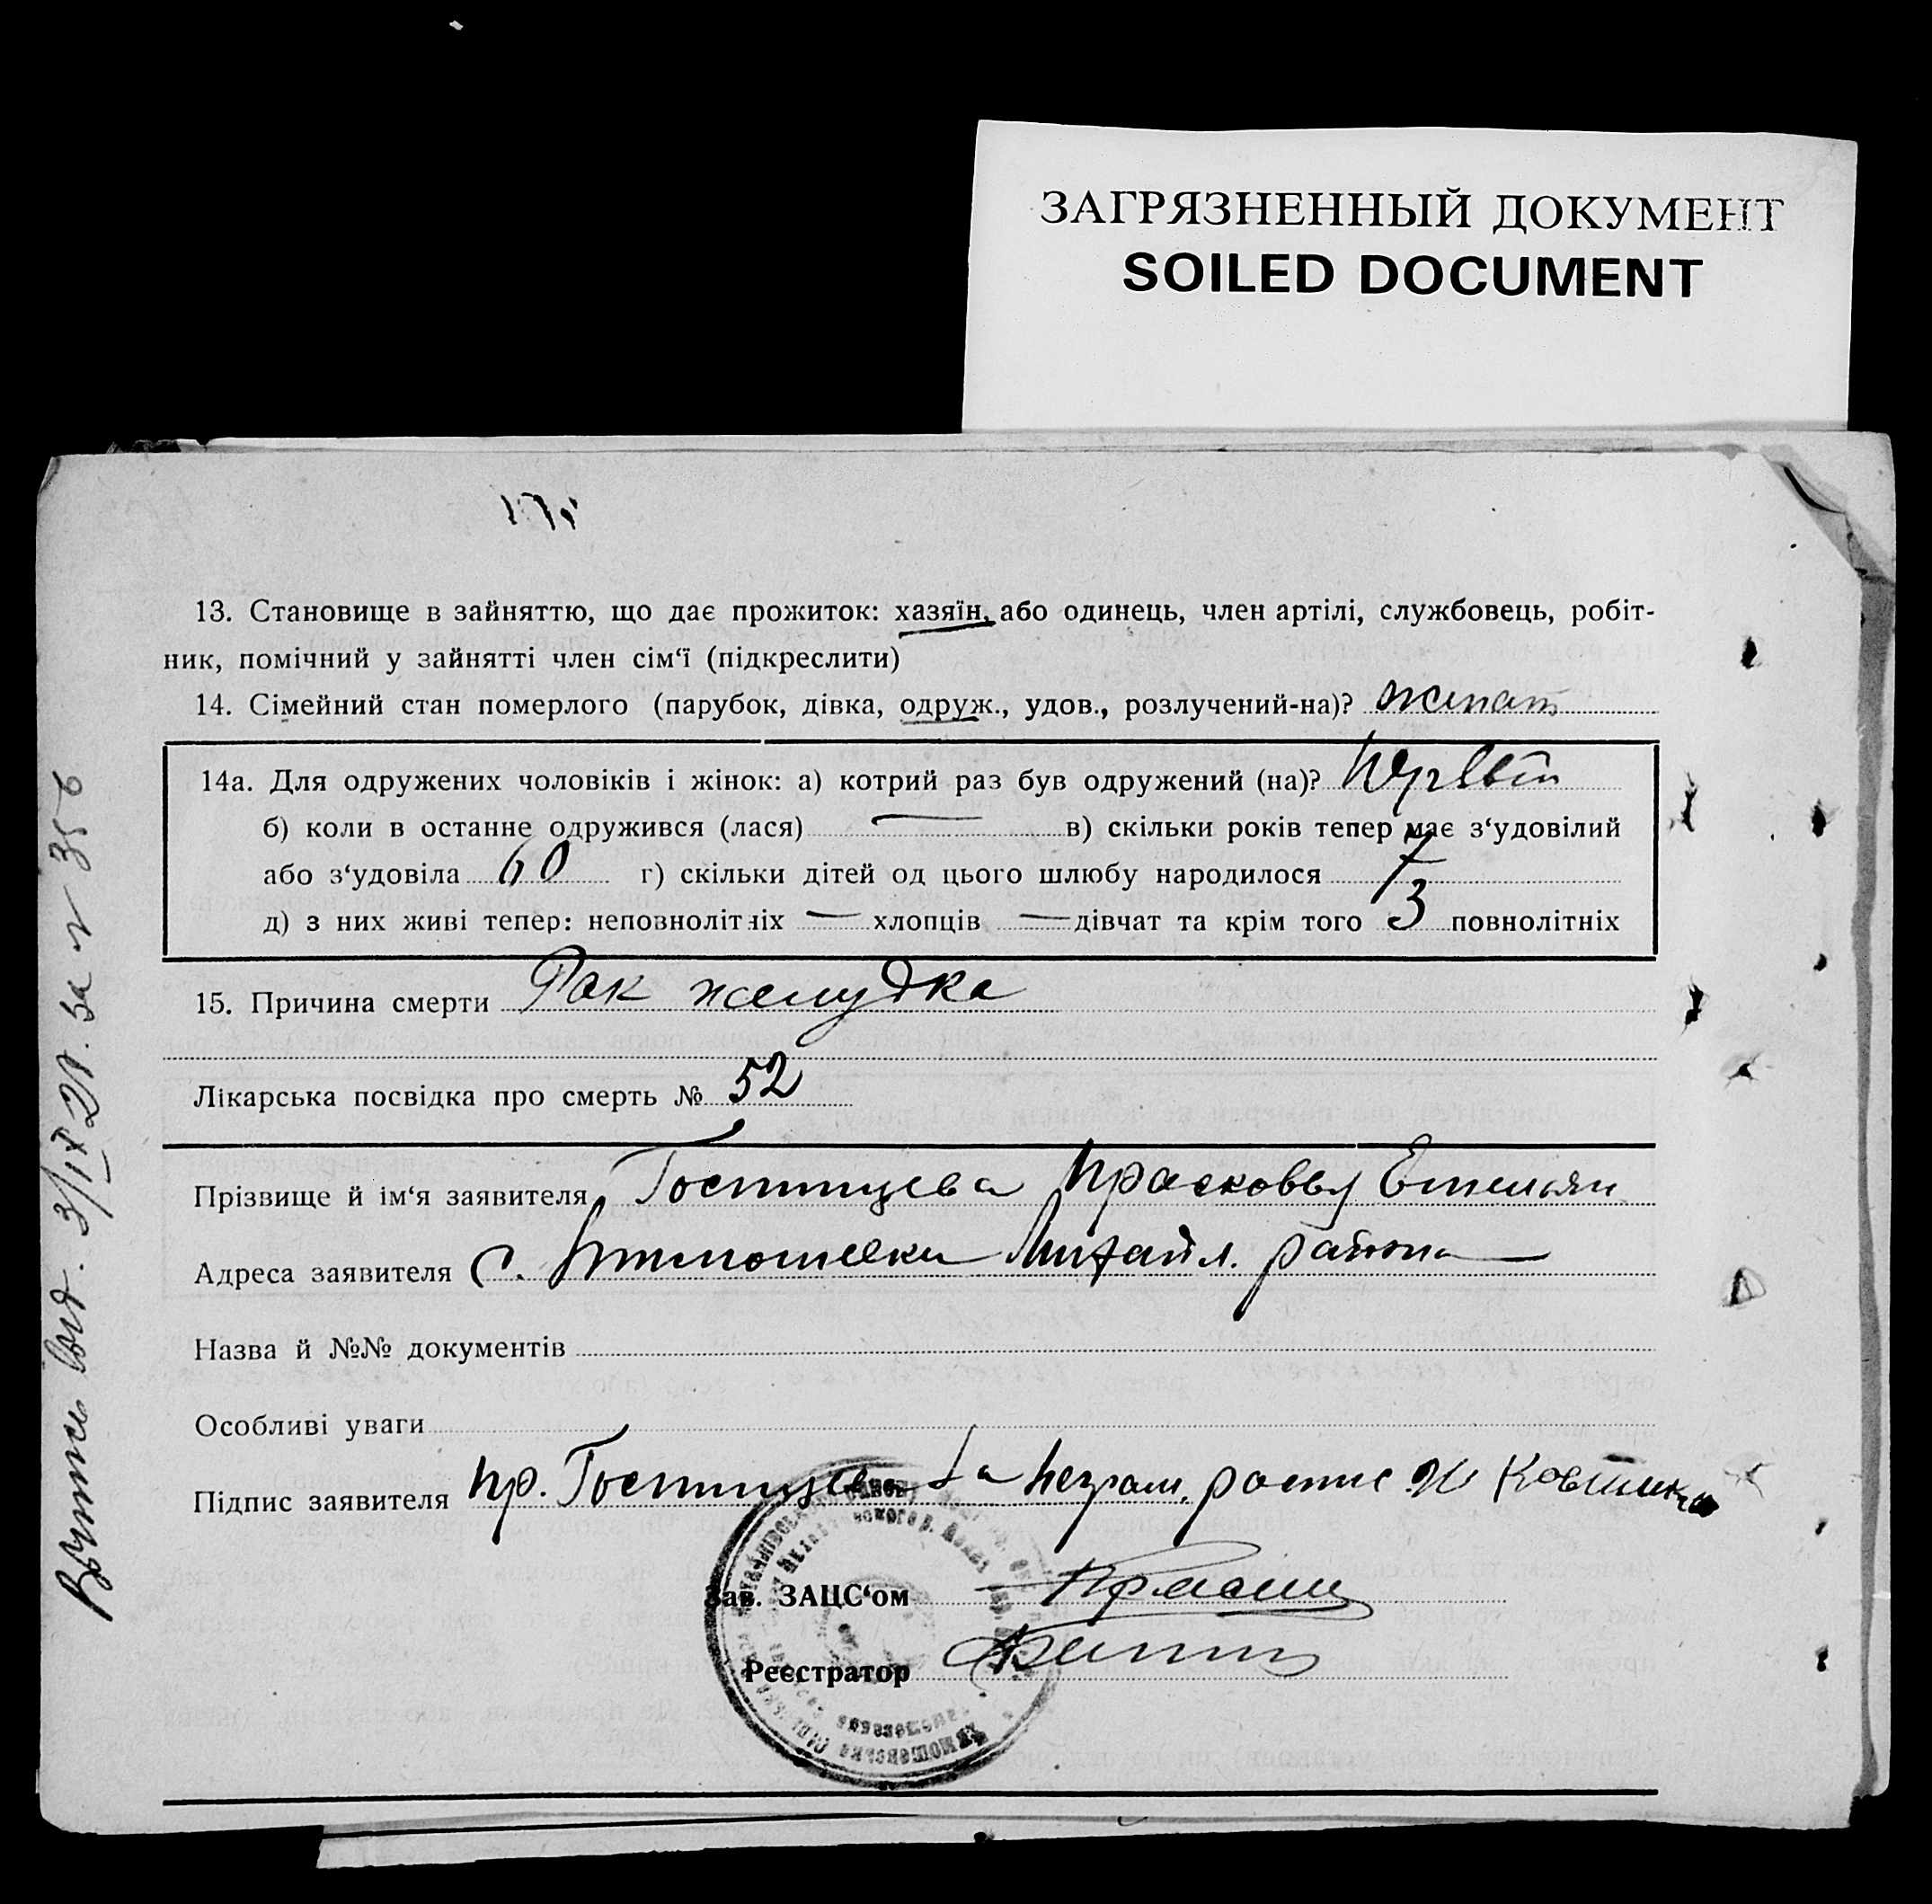 ЗАГРЯЗНЕННЫЙ ДОКУМЕНТ
SOILED DOCUMENT
13. Становище в зайняттю, що дає прожиток: хазяїн, або одинець, член артілі, службовець, робіт-
ник, помічний у зайнятті член сім‘ї (підкреслити)
14. Сімейний стан померлого (парубок, дівка, одруж., удов., розлучений-на)? женат
14а. Для одружених чоловіків і жінок: а) котрий раз був одружений (на)? первый
б) коли в останнє одружився (лася) — в) скільки років тепер має з‘удовілий
або з‘удовіла 60 г) скільки дітей од цього шлюбу народилося 7
д) з них живі тепер: неповнолітніх — хлопців — дівчат та крім того 3 повнолітніх
15. Причина смерти Рак желудка
Лікарська посвідка про смерть № 52
Прізвище й ім‘я заявителя Гостищева Прасковья Емельян
Адреса заявителя с. Тимошевки Михайл. района
Назва й №№ документів
Особливі уваги
Підпис заявителя Пр. Гостищева За неграм. роспис
Зав. ЗАЦС‘ом
Реєстратор
Выпись выд. 3/IX 29. за № 356